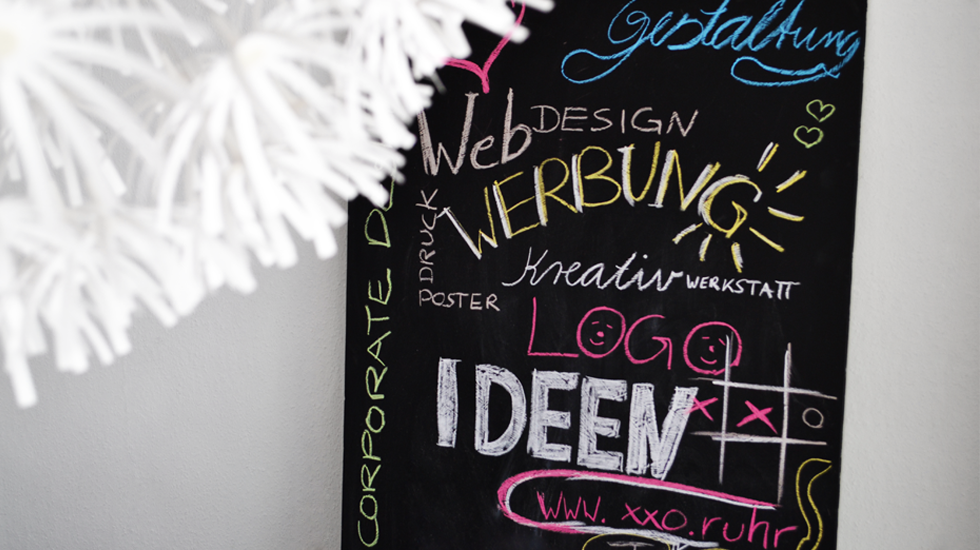 Gestaltung
Web DESIGN
WERBUNG
DRUCK
POSTER
Kreativ WERKSTATT
LOGO
IDEEN
X X O
www.xxo.ruhr
CORPORATE